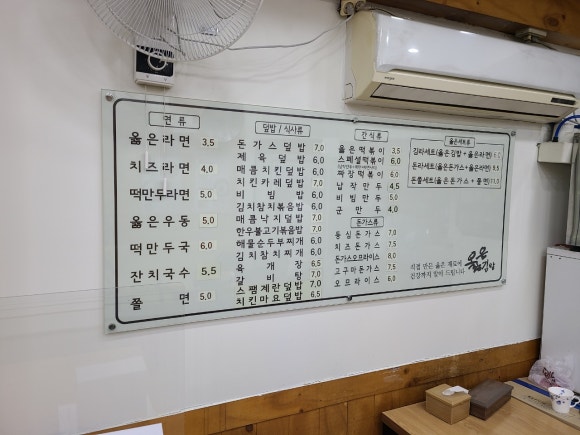 면 류
옳은라면 3,5
치즈라면 4,0
떡만두라면 5,0
옳은우동 5,0
떡만두국 6,0
잔치국수 5,5
쫄 면 5,0
덮밥 / 식사류
돈가스덮밥 7,0
제육덮밥 6,0
매콤치킨덮밥 6,0
치킨카레덮밥 7,0
비빔밥 6,0
김치참치볶음밥 6,0
매콤낙지덮밥 7,0
한우불고기볶음밥 7,0
해물순두부찌개 6,0
김치참치찌개 6,0
육개장 6,5
갈비탕 7,0
스팸계란덮밥 7,0
치킨마요덮밥 6,5
간식류
옳은떡볶이 3,5
스페셜떡볶이 6,0
짜장떡볶이 6,0
납작만두 4,5
비빔만두 5,0
군만두 4,0
돈가스류
등심돈가스 7,0
치즈돈가스 7,5
돈가스오므라이스 8,0
고구마돈가스 7,5
오므라이스 6,0
옳은세트류
김라세트(옳은김밥 + 옳은라면)
돈라세트(옳은돈가스 + 옳은라면) 9,5
돈쫄세트(옳은돈가스 + 쫄면) 11,0
직접 만든 옳은 재료에
건강까지 말아 드립니다
옳은김밥